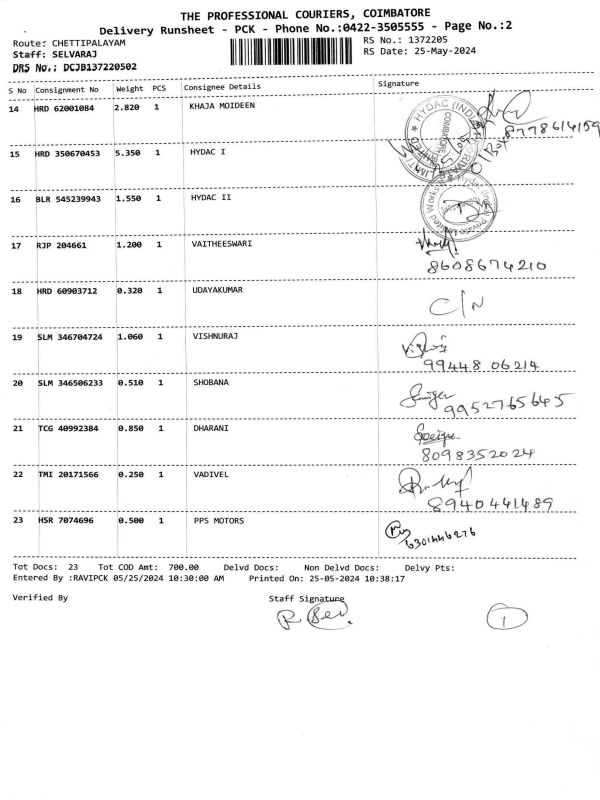 THE PROFESSIONAL COURIERS, COIMBATORE
Delivery Runsheet - PCK - Phone No.:0422-3505555 - Page No.:2
Route: CHETTIPALAYAM RS No.: 1372205
Staff: SELVARAJ RS Date: 25-May-2024
DRS No.: DCJB137220502
S No Consignment No Weight PCS Consignee Details Signature
14 HRD 62001084 2.820 1 KHAJA MOIDEEN
8778614159
15 HRD 350670453 5.350 1 HYDAC I
16 BLR 545239943 1.550 1 HYDAC II
17 RJP 204661 1.200 1 VAITHEESWARI
8608674210
18 HRD 60903712 0.320 1 UDAYAKUMAR C/N
19 SLM 346704724 1.060 1 VISHNURAJ
99448 06214
20 SLM 346506233 0.510 1 SHOBANA
9952765645
21 TCG 40992384 0.850 1 DHARANI
8098352024
22 TMI 20171566 0.250 1 VADIVEL
8940441489
23 HSR 7074696 0.500 1 PPS MOTORS
6301446276
Tot Docs: 23 Tot COD Amt: 700.00 Delvd Docs: Non Delvd Docs: Delvy Pts:
Entered By :RAVIPCK 05/25/2024 10:30:00 AM Printed On: 25-05-2024 10:38:17
Verified By Staff Signature
1